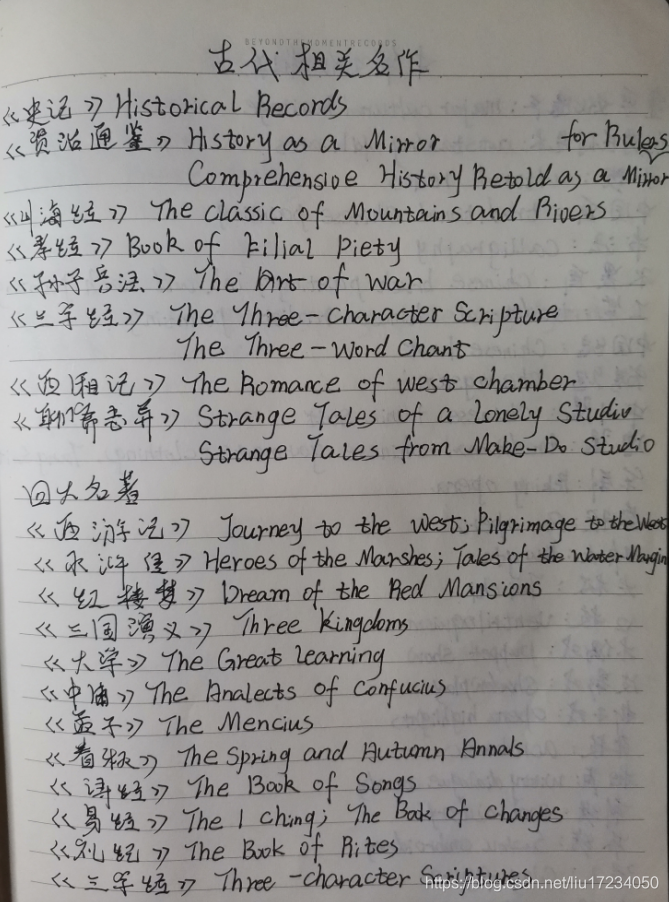 BEYONDTHEMOMENTRECORDS
古代相关名作
《史记》Historical Records
《资治通鉴》History as a Mirror for Rulers
Comprehensive History Retold as a Mirror
《山海经》The classic of Mountains and Rivers
《孝经》Book of Filial Piety
《孙子兵法》The Art of war
《三字经》The Three-character Scripture
The Three-Word Chant
《西厢记》The Romance of west chamber
《聊斋志异》Strange Tales of a Lonely Studio
Strange Tales from Make-Do Studio
四大名著
《西游记》Journey to the west; Pilgrimage to the West
《水浒传》Heroes of the Marshes; Tales of the Water Margin
《红楼梦》Dream of the Red Mansions
《三国演义》Three kingdoms
《大学》The Great learning
《中庸》The Analects of Confucius
《孟子》The Mencius
《春秋》The Spring and Autumn Annals
《诗经》The Book of Songs
《易经》The I Ching; The Book of Changes
《礼记》The Book of Rites
《三字经》Three-character Scriptures
https://blog.csdn.net/liu17234050